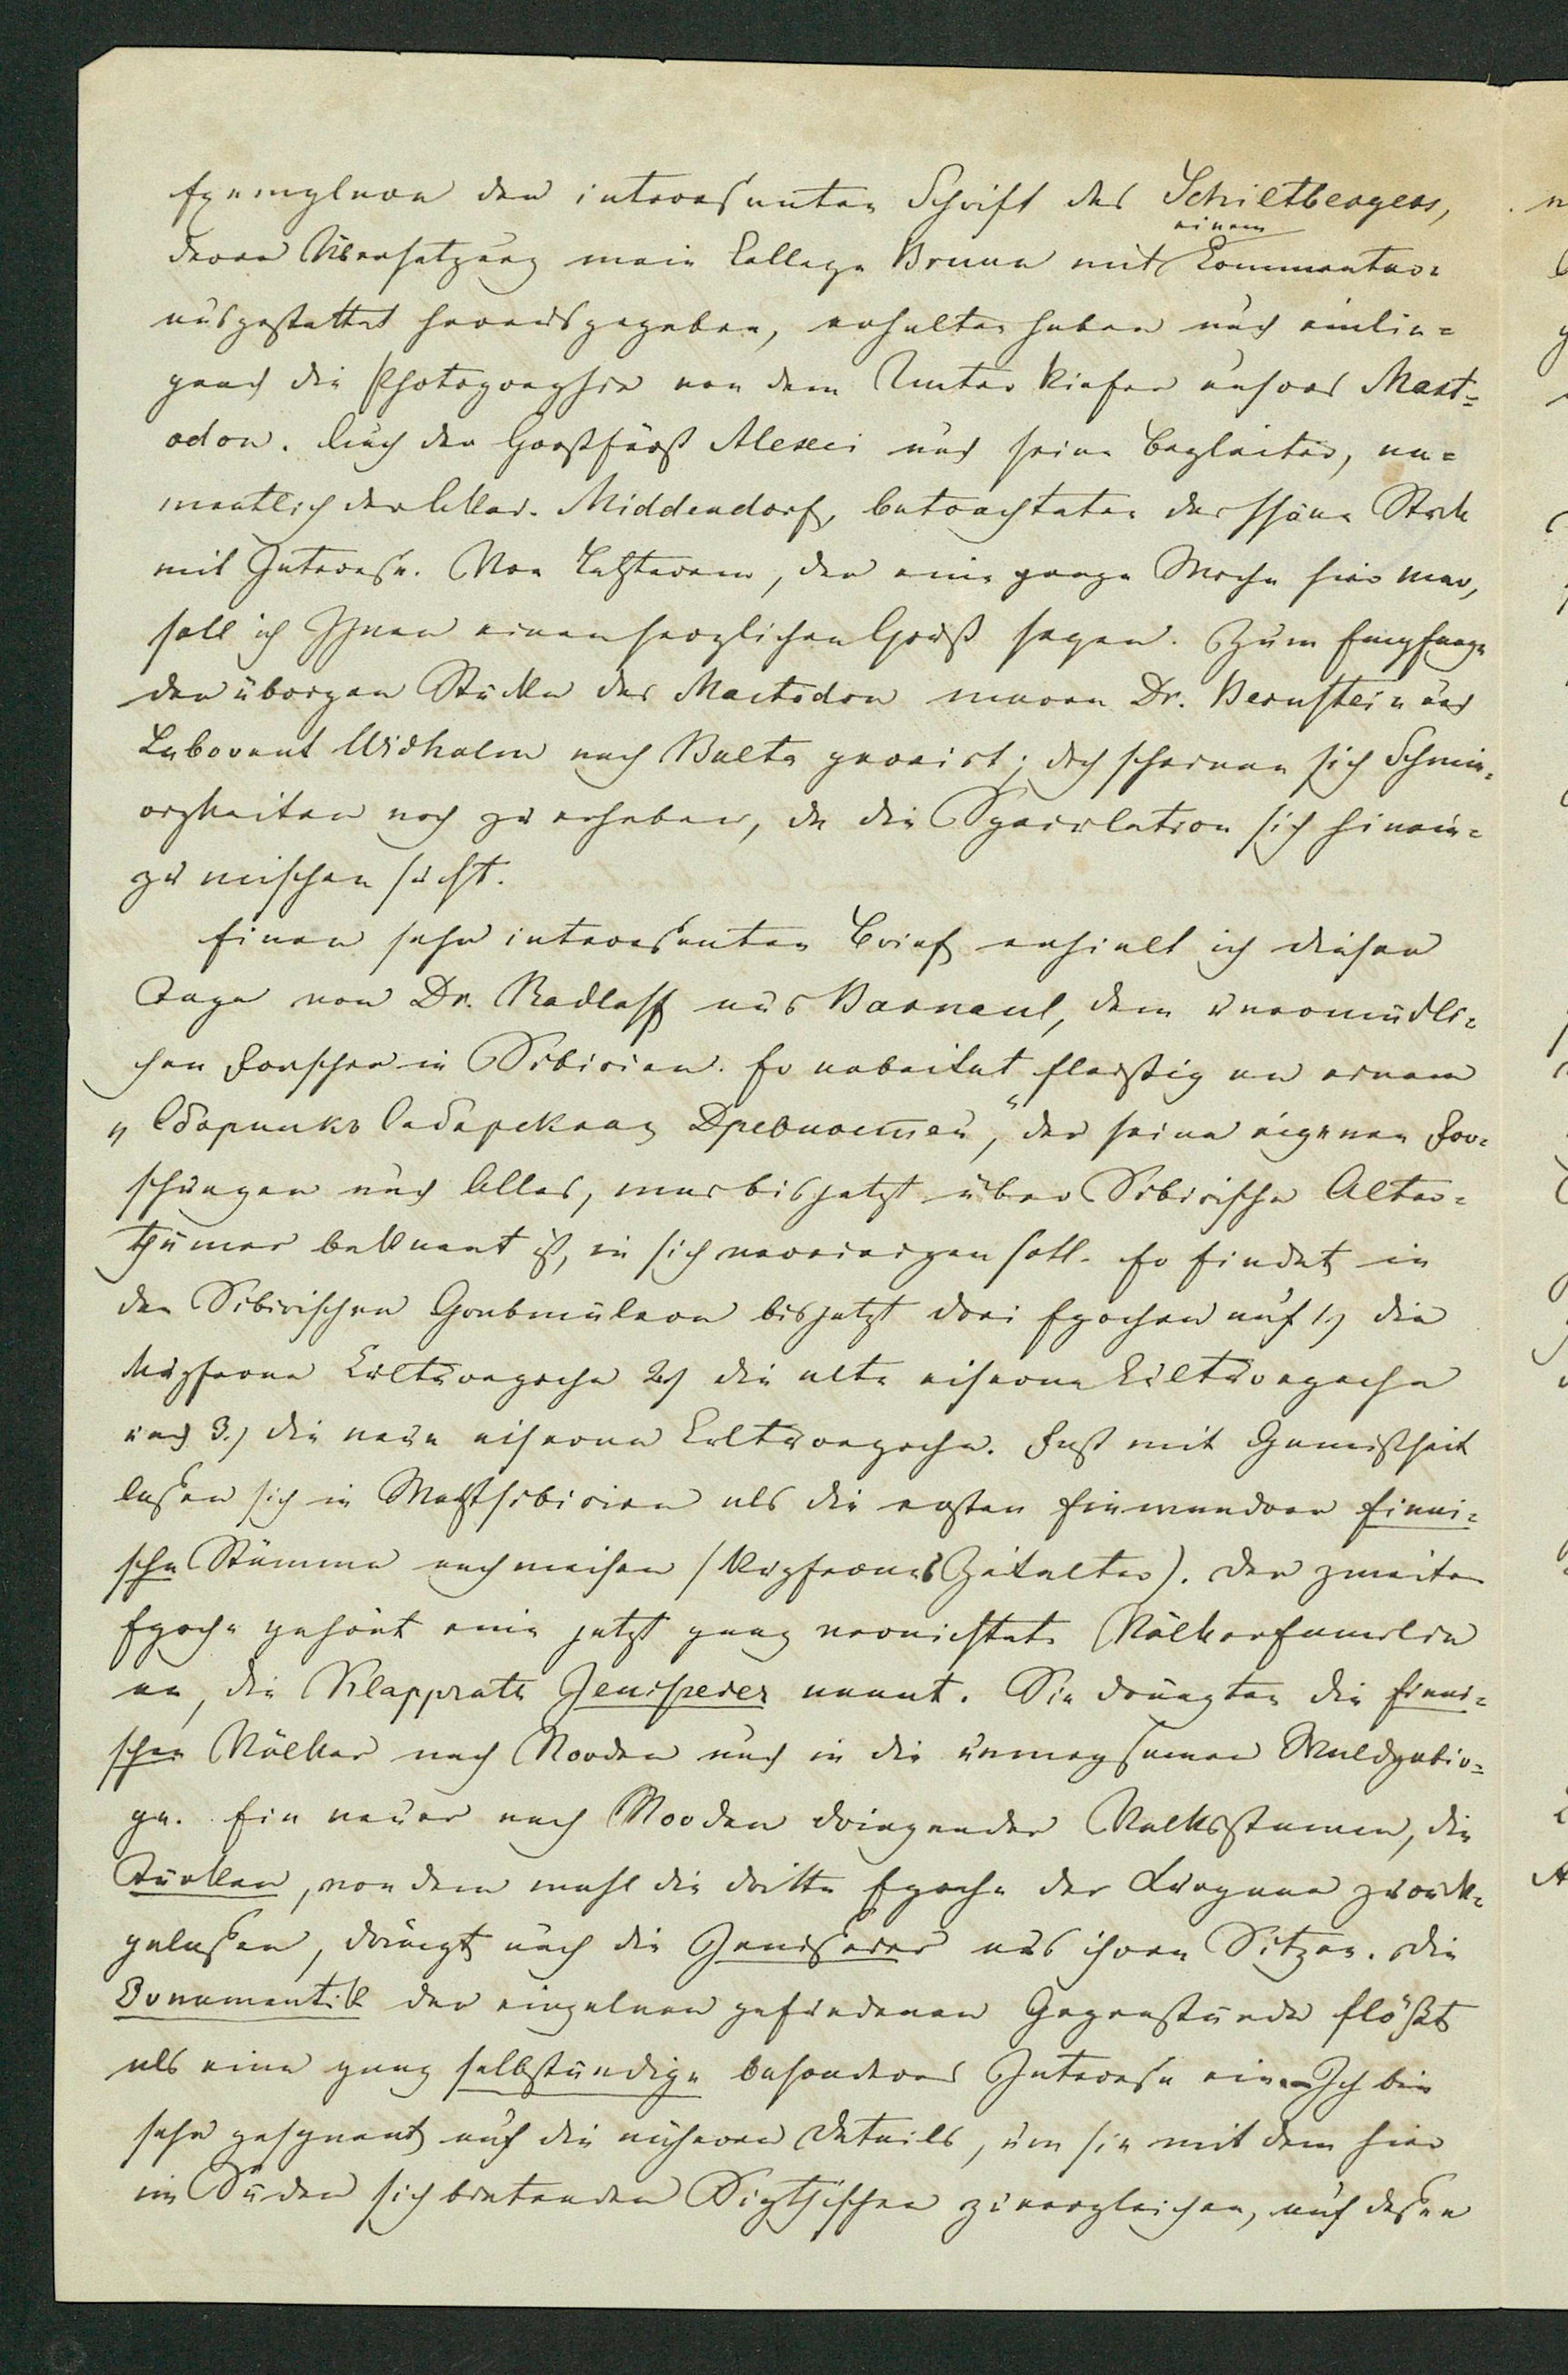 Exemplare der interessanten Schrift des Schiltbergers,
deren Übersetzung mein College Bruun mit einem Commentar
ausgestattet herausgegeben, erhalten haben und
die Photographie von dem Unterkiefer unsers Mast=
odon. Auch der Großfürst Alexei und seine Begleiter, na=
mentlich der Akad. Middendorf, betrachteten das schöne Stück
mit Interesse. Von Letzterem, der eine ganze Woche hier war,
soll ich Ihnen einen herzlichen Gruß sagen. Zum Empfange
der übrigen Stücke des Mastodon waren Dr. Bernstein und
Laborant Widhalm nach Balta gereist; doch scheinen sich Schwie=
rigkeiten noch zu erheben, da die Speculation sich hinein=
zu mischen sucht.
Einen sehr interessanten Brief erhielt ich dieser
Tage von Dr. Radloff aus Barnaul, dem unermüdli=
chen Forscher in Sibirien. Er arbeitet fleißig an einem
„Сборникъ Сибирскихъ Древностей“, der seine eigenen For=
schungen und Alles, was bis jetzt über Sibirische Alter=
thümer bekannt ist, in sich vereinigen soll. Er findet in
den Sibirischen Grabmälern bis jetzt drei Epochen auf 1.) die
kupferne Culturepoche 2.) die alte eiserne Culturepoche
und 3.) die neue eiserne Culturepoche. Fast mit Gewißheit
lassen sich in Westsibirien als die ersten Einwanderer finni=
sche Stämme nachweisen (kupfernes Zeitalter). Der zweiten
Epoche gehört eine jetzt ganz vernichtete Völkerfamilie
an, die Klapproth Jenisseier nennt. Sie drängten die finni=
schen Völker nach Norden und in die unwegsamen Waldgebir=
ge. Ein neuer nach Norden dringender Volksstamm, die
Türken, von dem wohl die dritte Epoche der Kurgane zurück=
gelassen, drängt auch die Jenisseier aus ihren Sitzen. Die
Ornamentik der einzelnen gefundenen Gegenstände flößt
als eine ganz selbständige besonderes Interesse ein. – Ich bin
sehr gespannt auf die näheren Details, um sie mit dem hier
im Süden sich bietenden Skythischen zu vergleichen, auf dessen